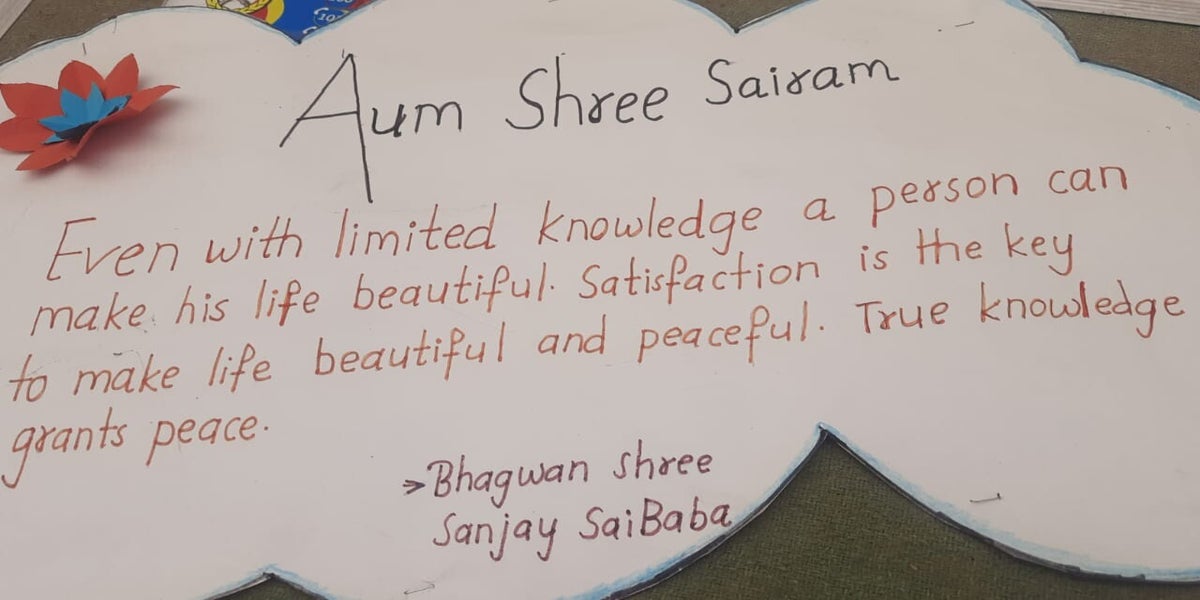 Aum Shree Sairam
Even with limited knowledge a person can
make his life beautiful. Satisfaction is the key
to make life beautiful and peaceful. True knowledge
grants peace.
➣Bhagwan shree
Sanjay SaiBaba